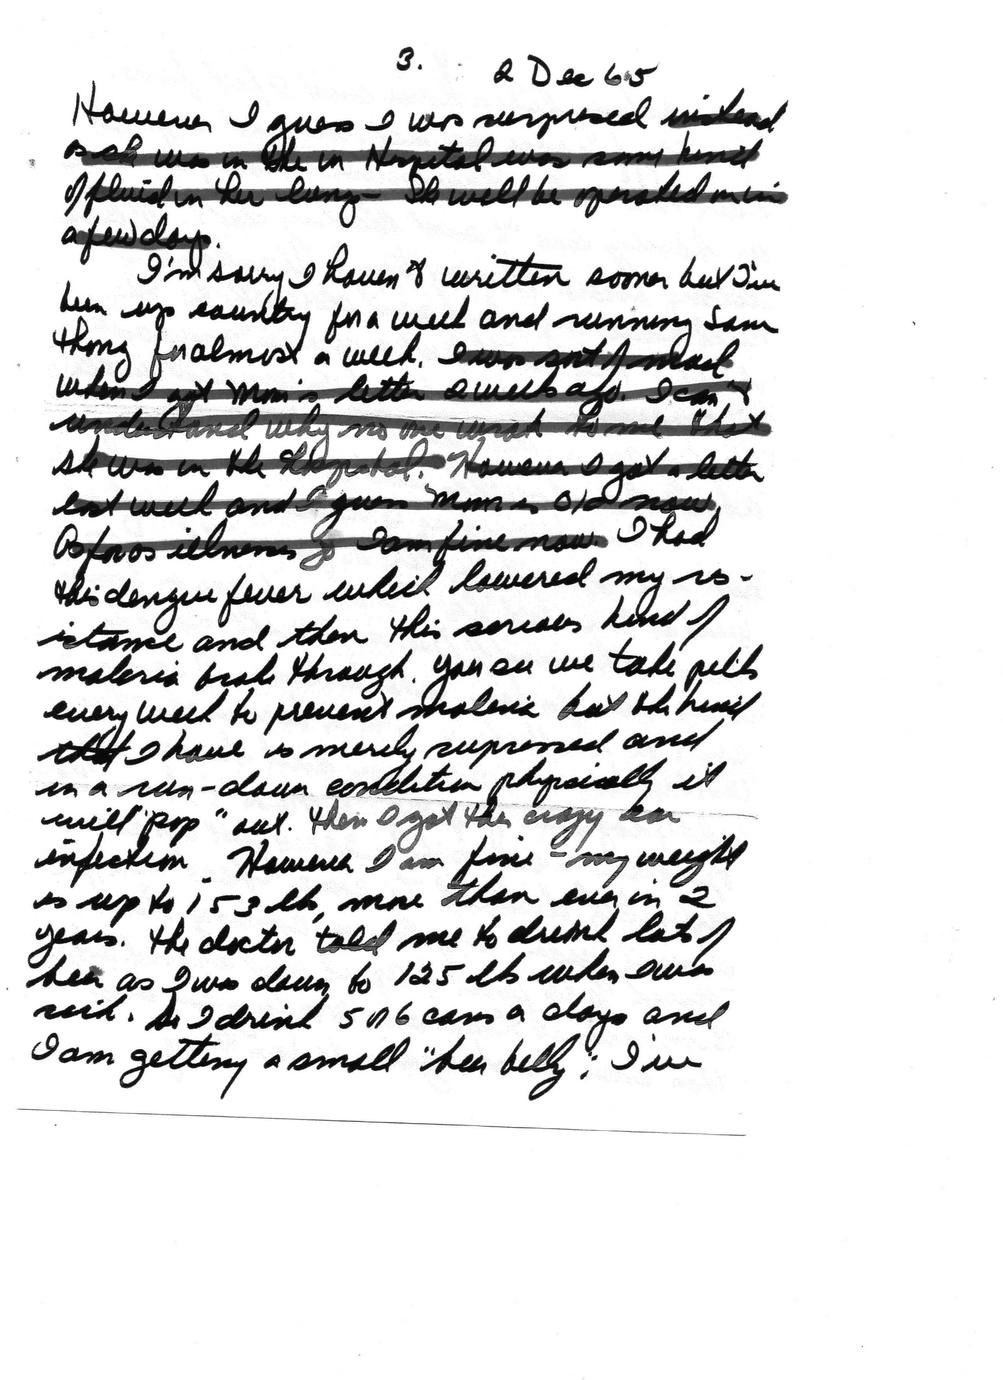 3. 2 Dec 65
However I guess I was surprised instead
as she was in the in Hospital was some kind
of fluid in her lung - She will be operated on in
a few days.
I'm sorry I haven't written sooner but I've
been up country for a week and running Sam
Thong for almost a week. I was sort of mad
when I got Mom's letter 2 weeks ago. I can't
understand why no one wrote to me that
she was in the hospital. However I got a letter
last week and I guess Mom is O.K. now.
As for os illnesses I am fine now. I had
this dengue fever which lowered my res-
istance and then this serious kind of
malaria broke through. You see we take pills
every week to prevent malaria but the kind
that I have is merely supressed and
in a run-down condition physically it
will "pop" out. Then I got this crazy ear
infection. However I am fine - my weight
is up to 153 lb, more than ever in 2
years. The doctor told me to drink lots of
beer as I was down to 125 lb when I was
sick. So I drink 5 or 6 cans a days and
I am getting a small "beer belly"; I've